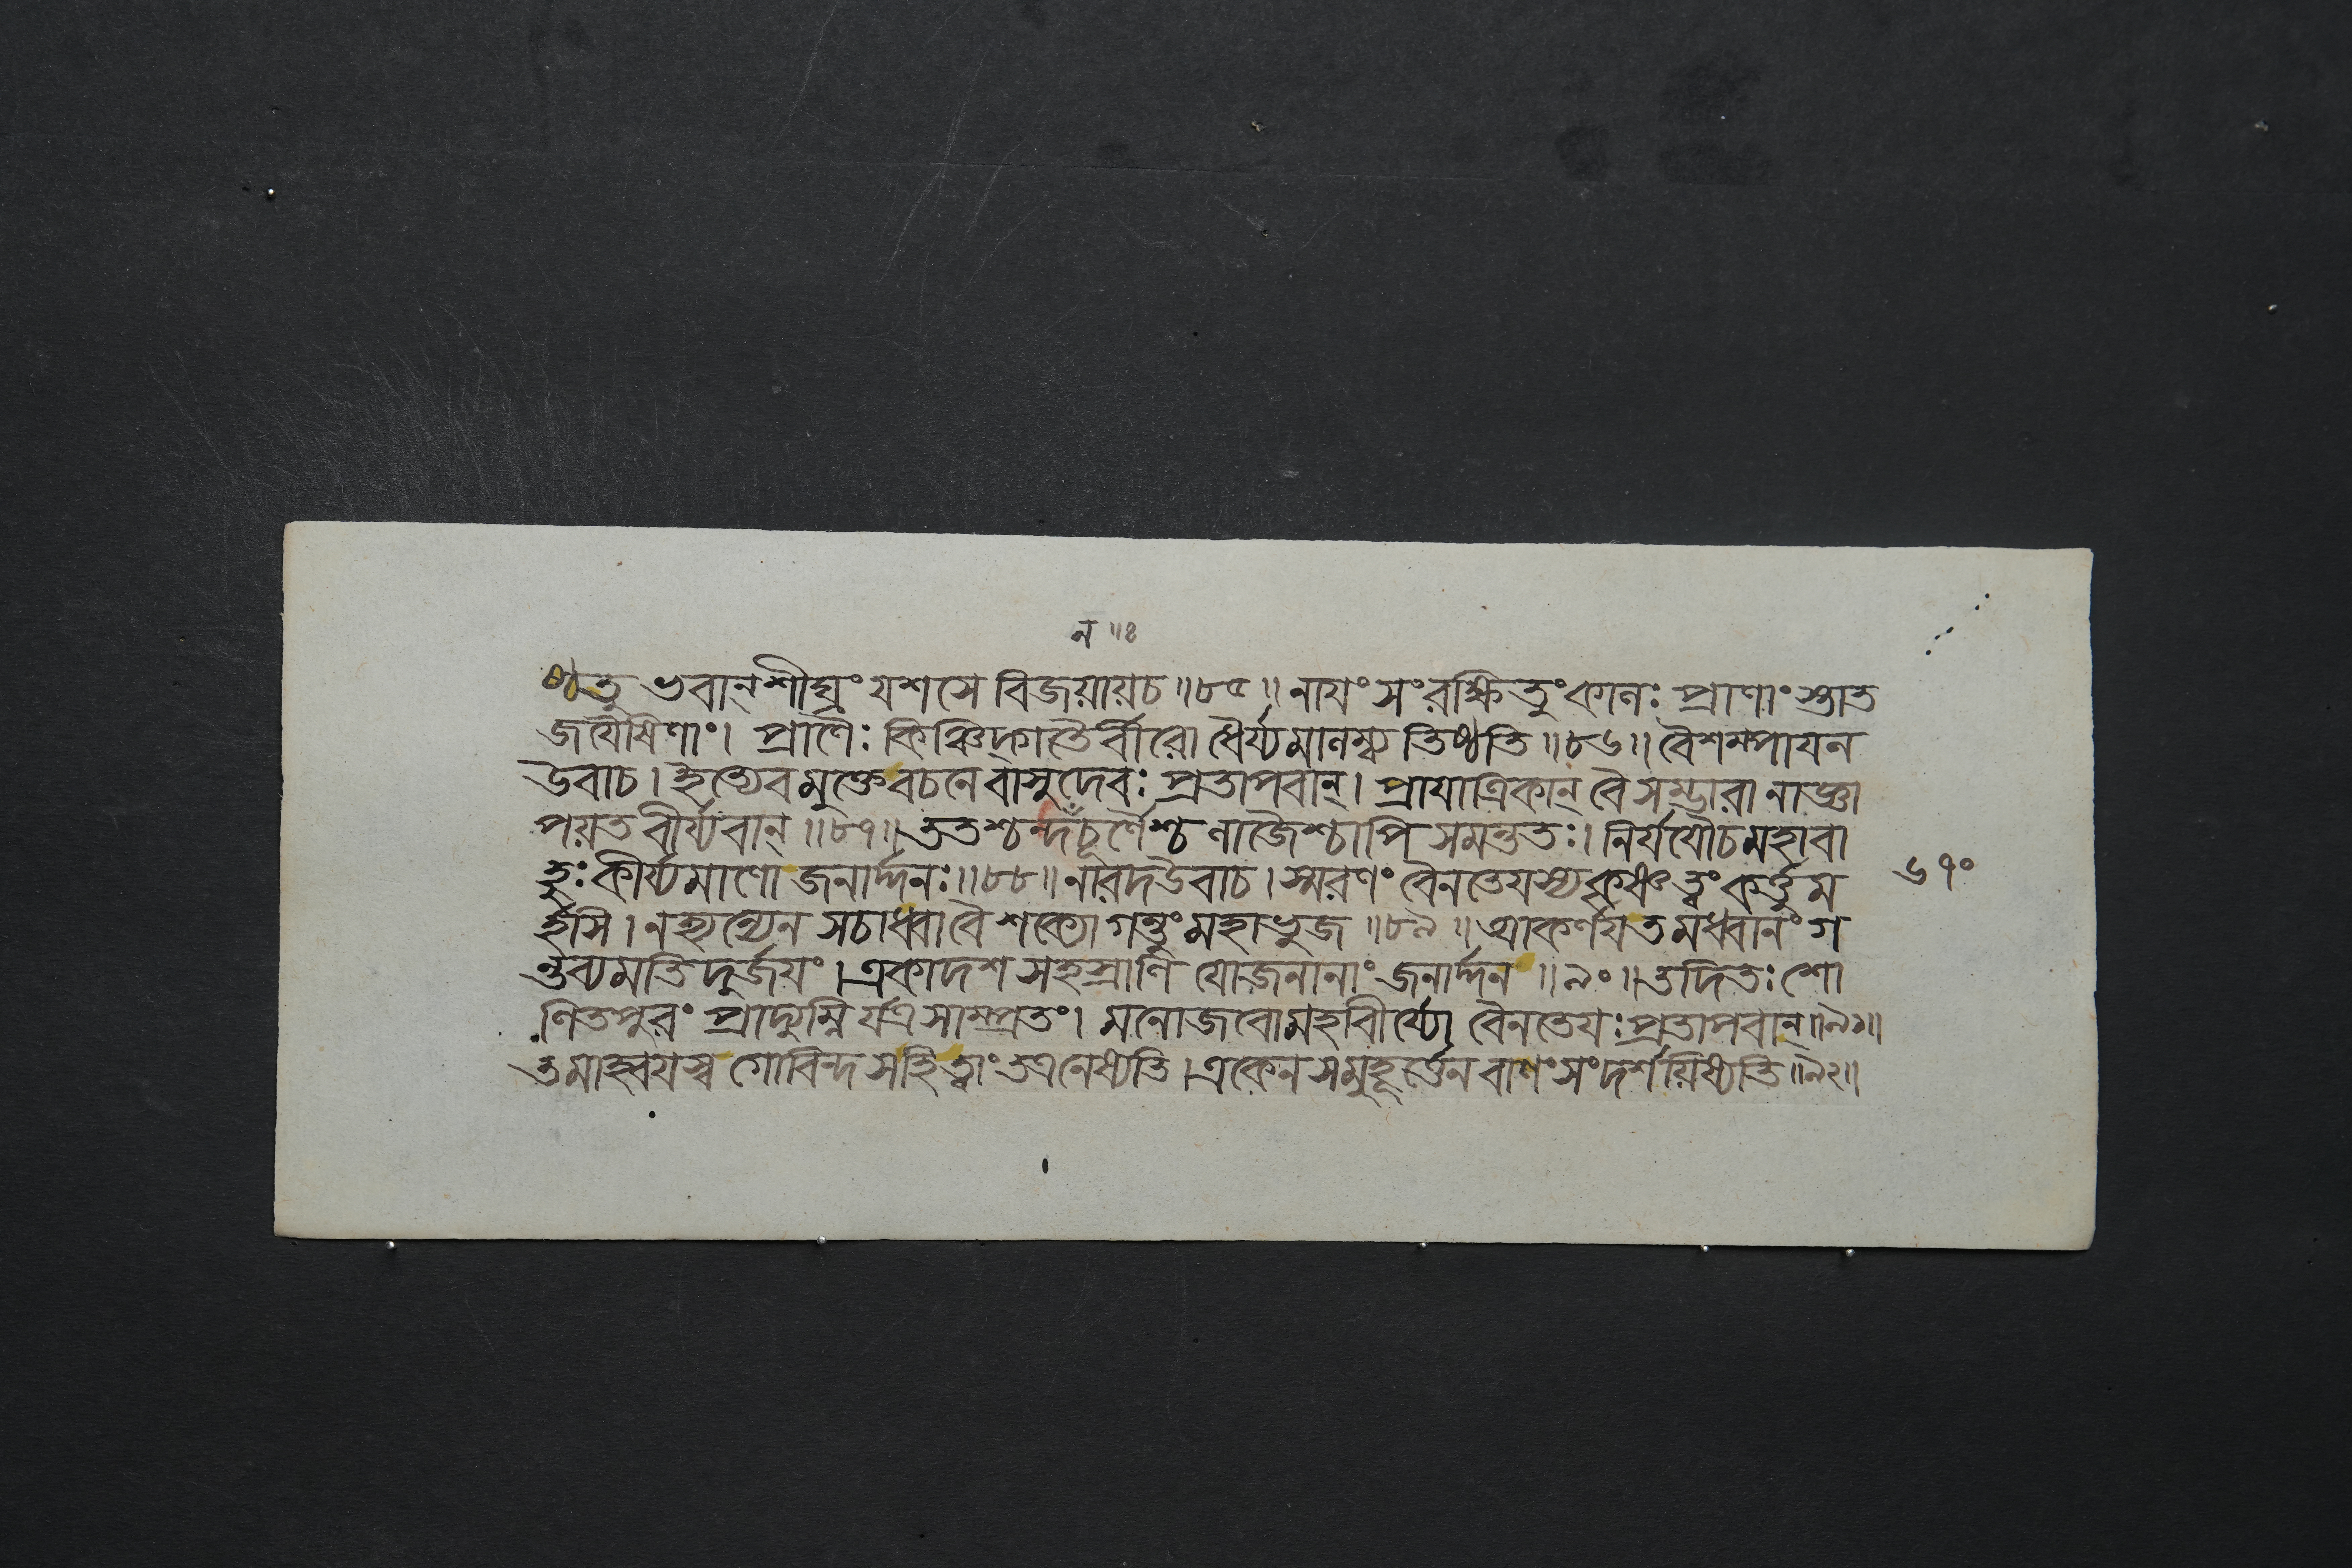 ন ॥ঃ
ষ্ঠতু ভবান্ শীঘ্রং যশসে বিজয়ায়চ ॥৮৫॥ নায়ং সংরক্ষিতুং কালঃ প্রাণাংস্তাত
জয়ৈষিণাং। প্রাণৈঃ কিঞ্চিদ্গতৈর্বীরো ধৈর্য্যমালম্ব্য তিষ্ঠতি ॥৮৬॥ বৈশম্পায়ন
উবাচ। ইত্যেবমুক্তে বচনে বাসুদেবঃ প্রতাপবান্। প্রায়াত্রিকান্ বৈ সম্ভারানাজ্ঞা
পয়ত বীর্য্যবান্ ॥৮৭॥ ততশ্চন্দঁচূর্ণৈশ্চ লাজৈশ্চাপি সমন্ততঃ। নির্যযৌচমহাবা
হুঃ কীর্য্যমাণো জনার্দ্দনঃ ॥৮৮॥ নারদ উবাচ। স্মরণং বৈনতেয়স্য কৃষ্ণ ত্বং কর্ত্তুম
র্হসি। নহ্যন্যেন সচাধ্বা বৈ শক্যো গন্তুং মহাভুজ ॥৮৯॥ আকর্ণয় তমধ্বানং গ
ন্তব্যমতিদুর্জয়ং। একাদশ সহস্রাণি যোজনানাং জনার্দ্দন ॥৯০॥ তদিতঃ শো
ণিতপুরং প্রাদ্যুম্নির্যত্র সাম্প্রতং। মনোজবো মহাবীর্য্যো বৈনতেয়ঃ প্রতাপবান্ ॥৯১॥
তমাহ্বয়স্ব গোবিন্দ সহি ত্বাং তত্র নেষ্যতি। একেন স মুহূর্ত্তেন বাণং সংদর্শয়িষ্যতি ॥৯২॥
৬৭০